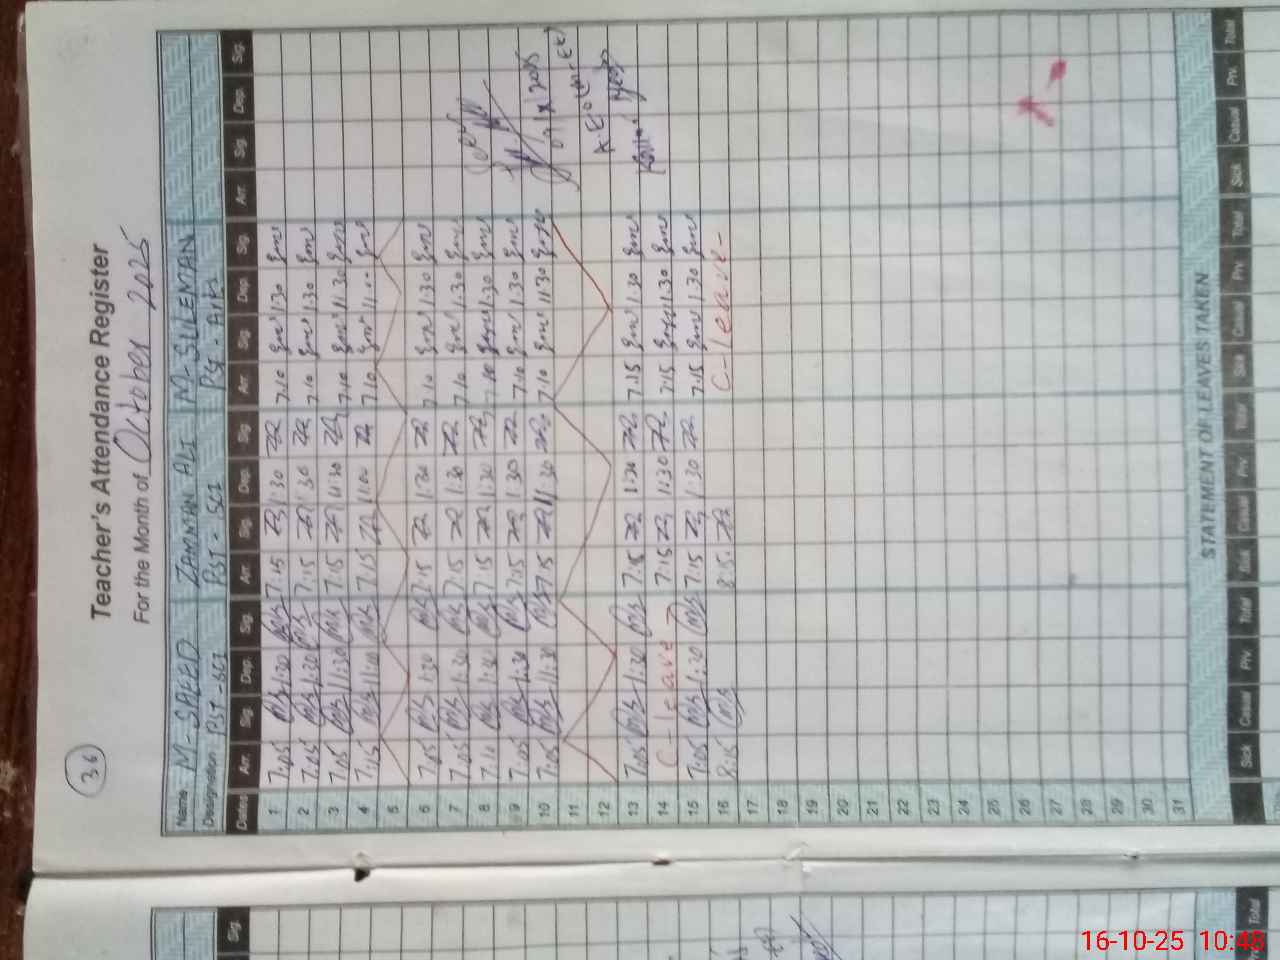 36
Teacher's Attendance Register
For the Month of October 2025
Name M-SAEED ZAMAN ALI M-SULEMAN
Designation PST-SCI PST-SCI PST-Arts
Dates Arr. Sig. Dep. Sig. Arr. Sig. Dep. Sig. Arr. Sig. Dep. Sig. Arr. Sig. Dep. Sig.
1 7:05 1:30 7:15 1:30 7:10 1:30
2 7:05 1:30 7:15 1:30 7:10 1:30
3 7:05 11:30 7:15 11:30 7:10 11:30
4 7:15 11:00 7:15 11:00 7:10 11:00
5
6 7:05 1:30 7:15 1:30 7:10 1:30
7 7:05 1:30 7:15 1:30 7:10 1:30
8 7:10 1:30 7:15 1:30 7:10 1:30
9 7:05 1:30 7:15 1:30 7:10 1:30
10 7:05 11:30 7:15 11:30 7:10 11:30
11
12
13 7:05 1:30 7:15 1:30 7:15 1:30
14 C-leave 7:15 1:30 7:15 1:30
15 7:05 1:30 7:15 1:30 7:15 1:30
16 8:15 8:15 C-leave
17
18
19
20
21
22
23
24
25
26
27
28
29
30
31
STATEMENT OF LEAVES TAKEN
Sick Casual Prv. Total Sick Casual Prv. Total Sick Casual Prv. Total Sick Casual Prv. Total
Sig.
Total
16-10-25 10:48